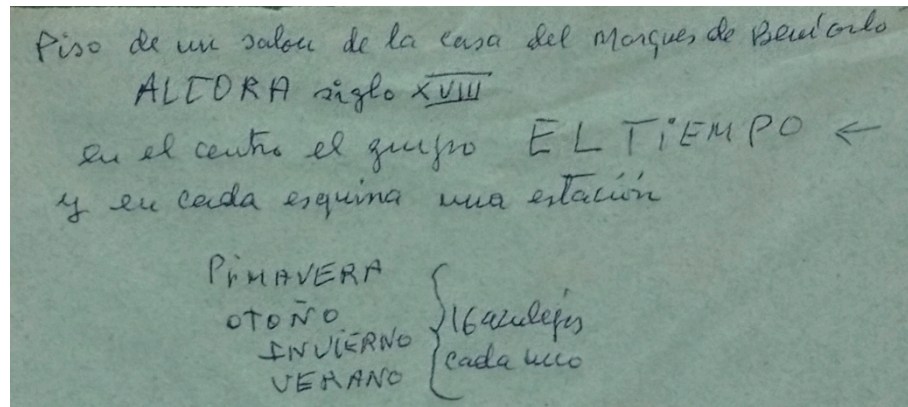 Piso de un salon de la casa del Marques de Benicarlo
ALCORA siglo XVIII
en el centro el grupo EL TiEMPO ←
y en cada esquina una estación
PRiMAVERA
OTOÑO
INViERNO
VERANO
16 azulejos
cada uno